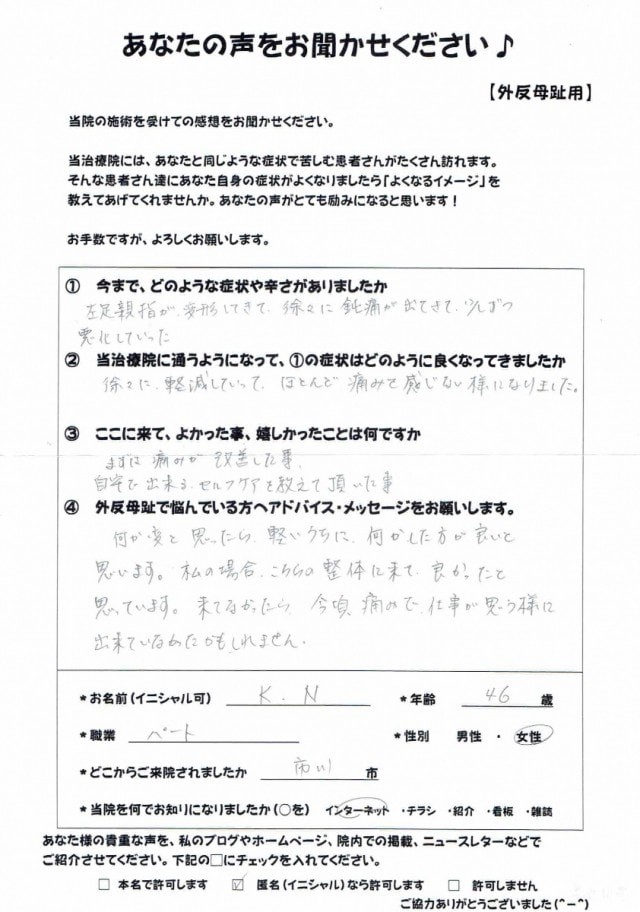 あなたの声をお聞かせください♪
【外反母趾用】
当院の施術を受けての感想をお聞かせください。
当治療院には、あなたと同じような症状で苦しむ患者さんがたくさん訪れます。
そんな患者さん達にあなた自身の症状がよくなりましたら「よくなるイメージ」を
教えてあげてくれませんか。あなたの声がとても励みになると思います！
お手数ですが、よろしくお願いします。
① 今まで、どのような症状や辛さがありましたか
左足親指が、変形してきて、徐々に鈍痛が出てきて、少しずつ
悪化していった
② 当治療院に通うようになって、①の症状はどのように良くなってきましたか
徐々に、軽減していって、ほとんど痛みを感じない様になりました。
③ ここに来て、よかった事、嬉しかったことは何ですか
まずは痛みが改善した事、
自宅で出来る、セルフケアを教えて頂いた事
④ 外反母趾で悩んでいる方へアドバイス・メッセージをお願いします。
何か変と思ったら、軽いうちに、何かした方が良いと
思います。私の場合、こちらの整体に来て、良かったと
思っています。来てなかったら、今頃、痛みで、仕事が思う様に
出来ていなかったかもしれません。
*お名前(イニシャル可) K.N *年齢 46 歳
*職業 パート *性別 男性 ・ 女性
*どこからご来院されましたか 市川 市
*当院を何でお知りになりましたか(○を) インターネット ・チラシ ・紹介 ・看板 ・雑誌
あなた様の貴重な声を、私のブログやホームページ、院内での掲載、ニュースレターなどで
ご紹介させてください。下記の□にチェックを入れてください。
□ 本名で許可します ☑ 匿名(イニシャル)なら許可します □ 許可しません
ご協力ありがとうございました(^-^)